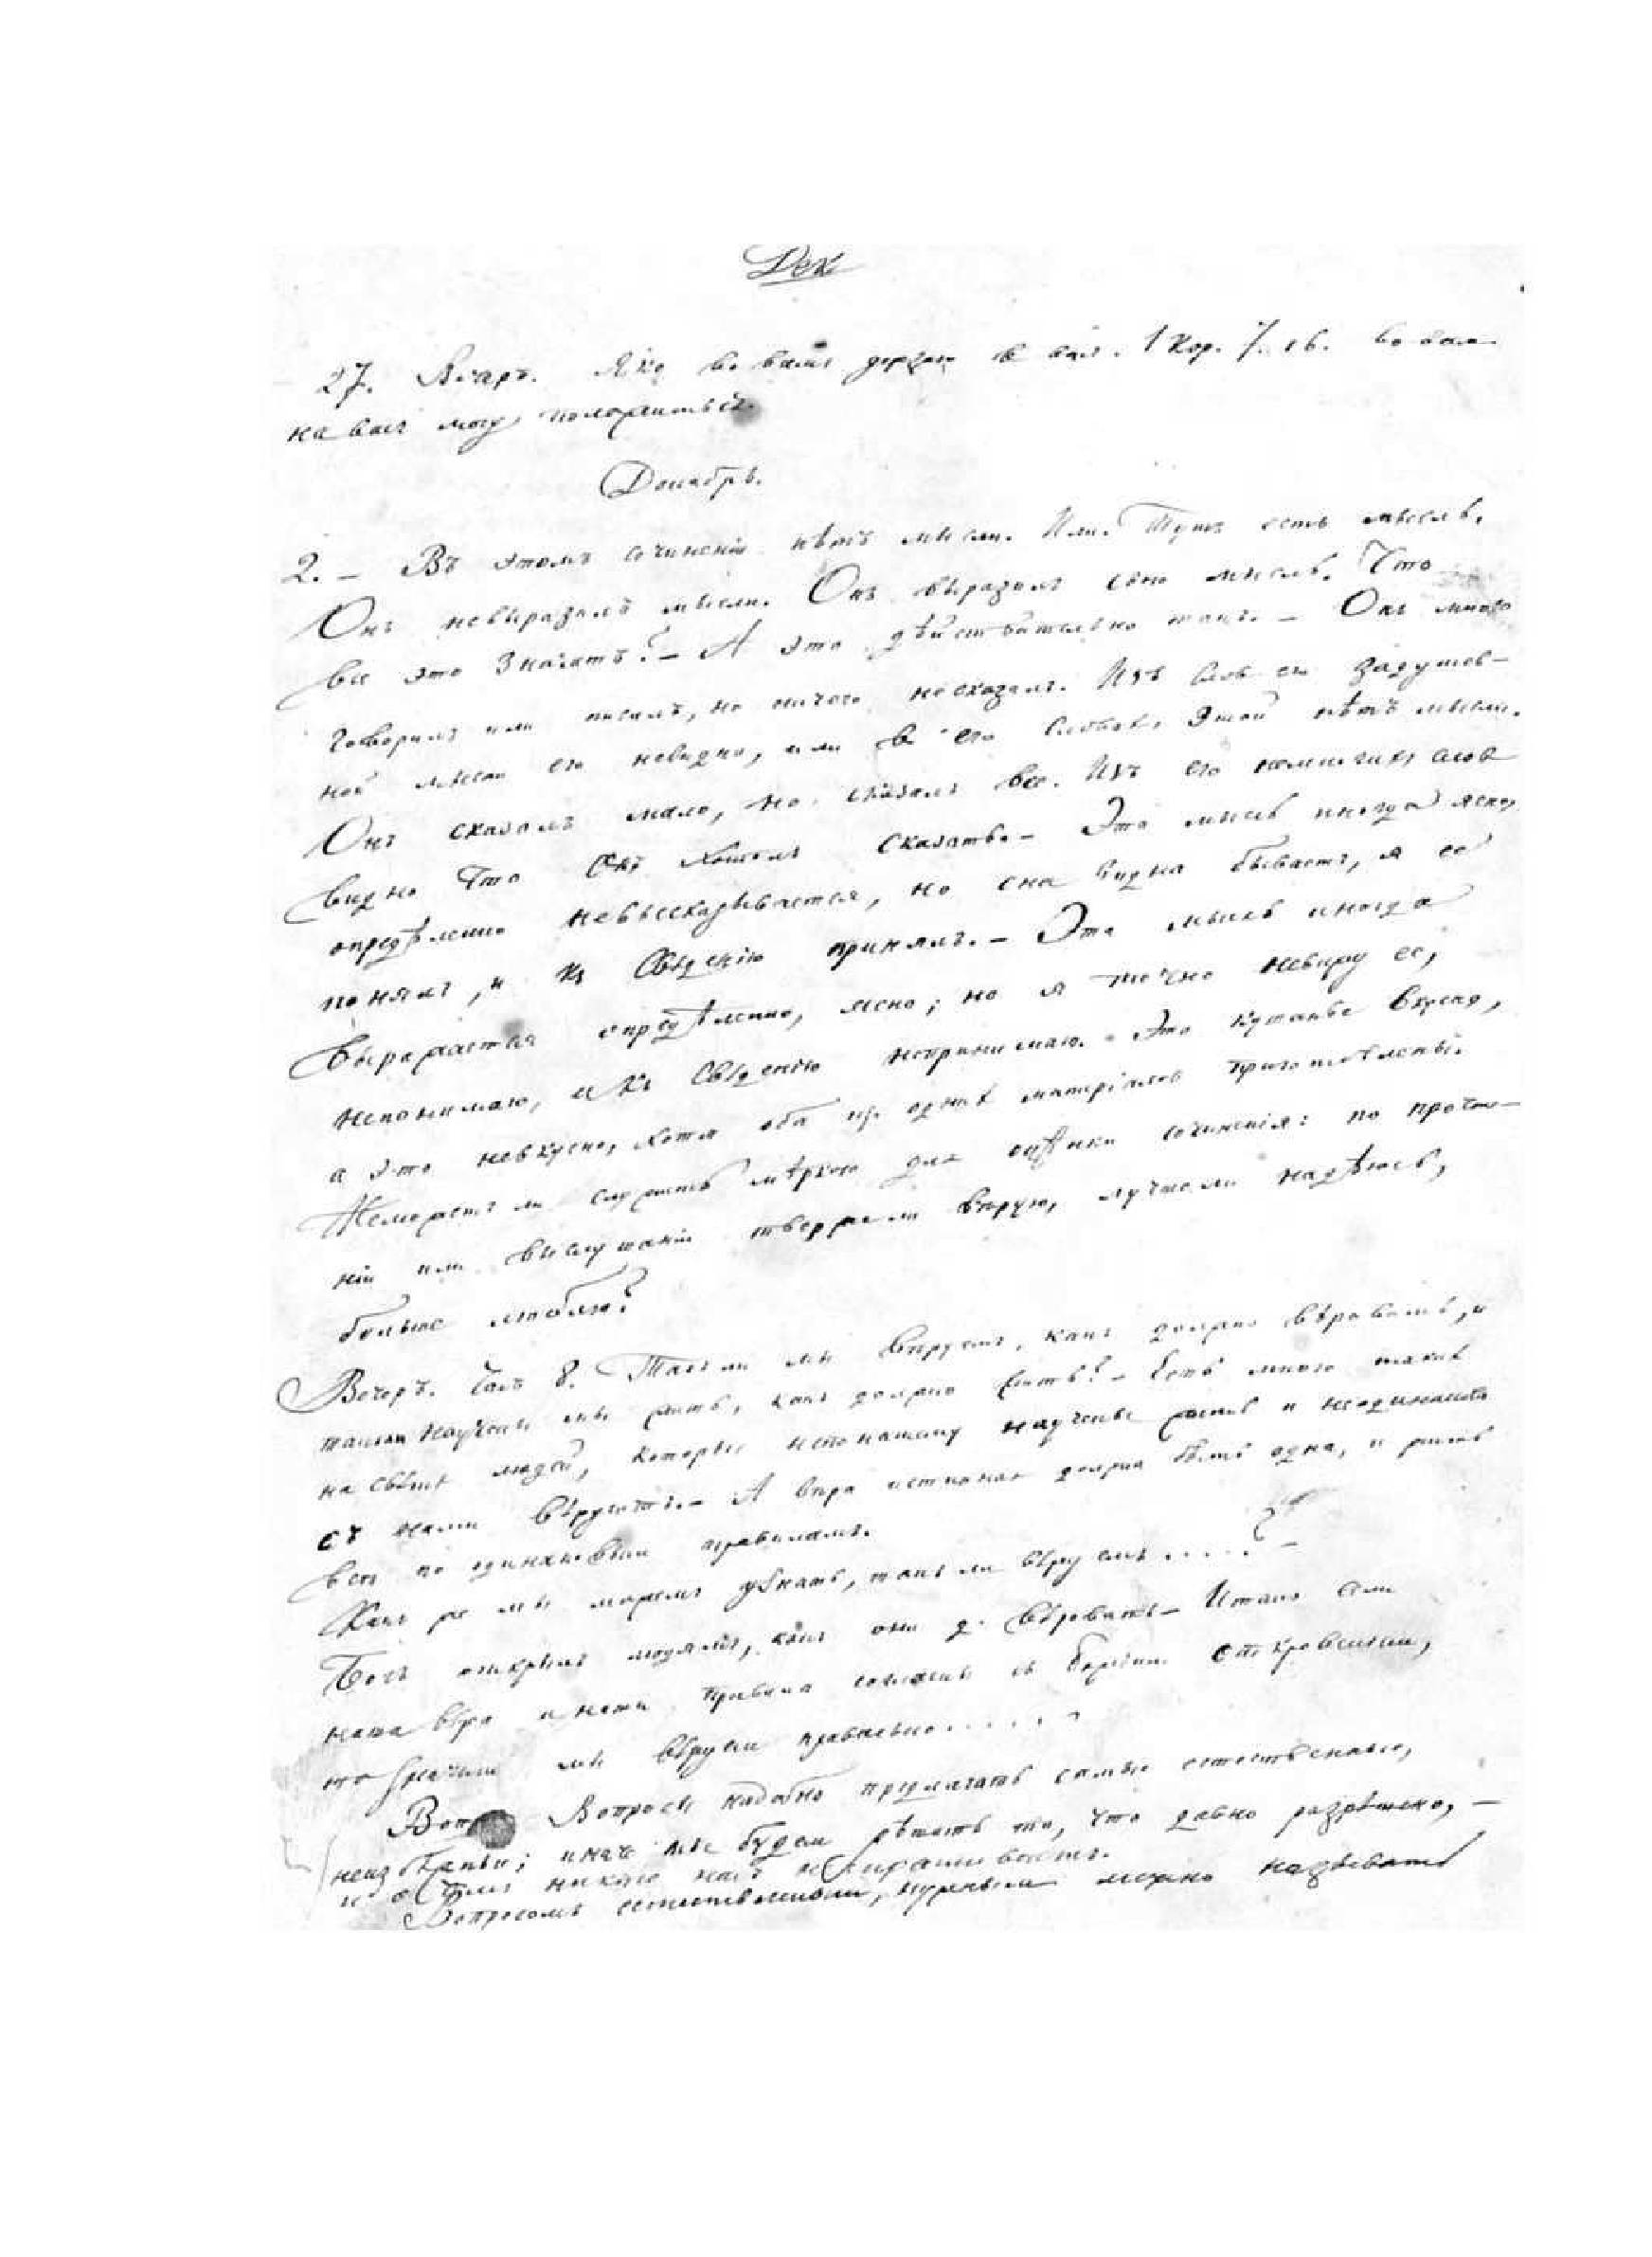 Дек
27. Вечеръ. Яко во всемъ дерзаю в вас. 1 Кор. 7. 16. во всем
на васъ могу положиться.
Декабрь.
2. – Въ этомъ сочиненіи нѣтъ мысли. Или. Тутъ есть мысль.
Онъ невыразилъ мысли. Онъ выразилъ свою мысль. Что
все это значитъ? – А это дѣйствительно такъ. – Онъ много
говорилъ или писалъ, но ничего несказалъ. Изъ словъ его задушев-
ной мысли его невидно, или в его словахъ этой нѣтъ мысли.
Онъ сказалъ мало, но сказалъ все. Изъ его немногихъ словъ
видно что онъ хотѣлъ сказать. – Эта мысль иногда ясно,
опредѣленно невысказывается, но она видна бываетъ, я ее
понялъ, и къ свѣденію принялъ. – Эта мысль иногда
выражается опредѣленно, ясно; но я точно невижу ее,
непонимаю, и къ свѣденію непринимаю. – Это кушанье вкусно,
а это невкусно, хотя оба изъ однихъ матеріаловъ приготовлены.
Неможетъ ли служить мѣркою для оцѣнки сочиненія: по прочте-
ніи или выслушаніи тверже ли вѣрую, лучше ли надѣюсь,
больше люблю?
Вечеръ. Часъ 8. Такъ ли мы вѣруемъ, какъ должно вѣровать, и
такъ ли научены мы жить, какъ должно жить? – Есть много такихъ
на свѣтѣ людей, которые непонашему научены жить и неодинаково
съ нами вѣруютъ. – А вѣра истинная должна быть одна, и жить
всѣ по одинаковым правиламъ.
Какъ же мы можемъ узнать, такъ ли вѣруемъ . . . . . ? –
Богъ открылъ людямъ, какъ они д. вѣровать – Итакъ если
наша вѣра и наши правила согласны съ Божіим откровеніем,
то значитъ мы вѣруем правильно . . . . . .
Вопросы надобно предлагать самые естественные,
неизбѣжные; иначе мы будем рѣшать то, что давно разрѣшено, –
и о чемъ никто насъ неспрашиваетъ.
Вопросомъ естественным, нужным можно называть